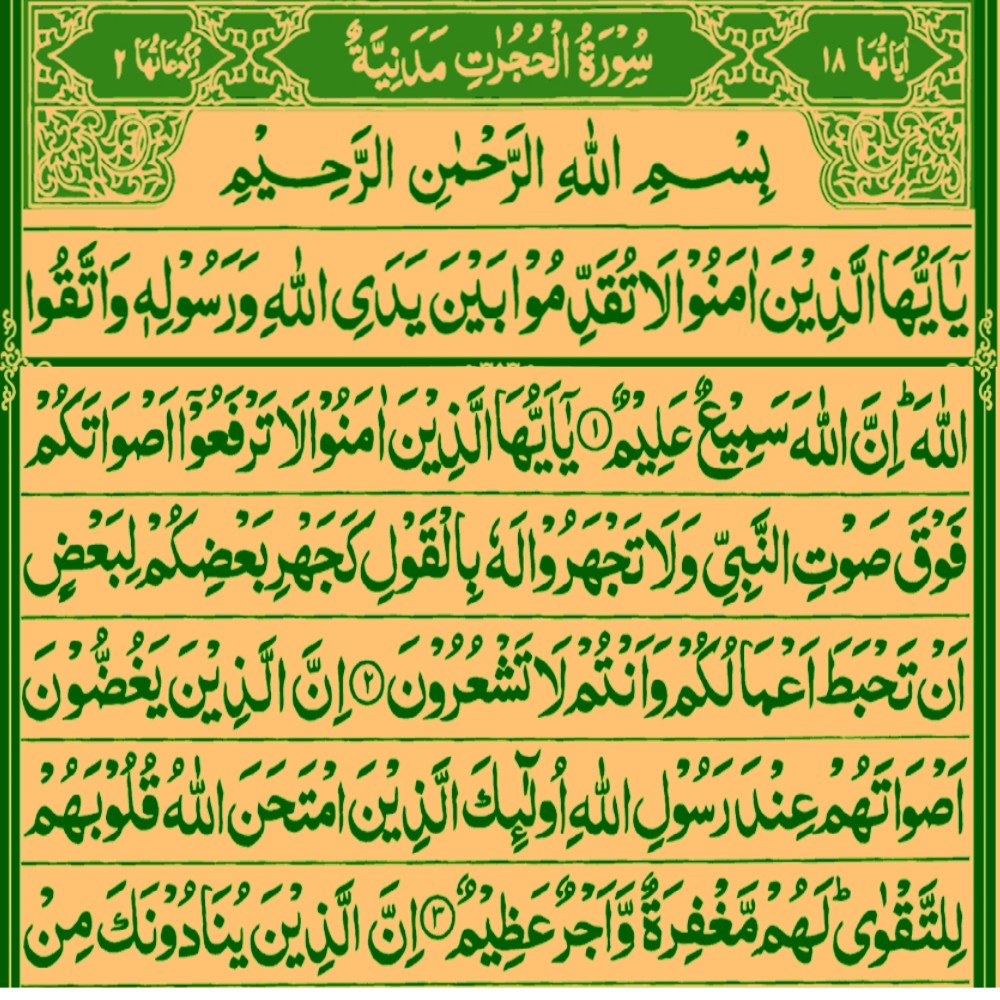 اٰيَاتُهَا ١٨ سُوْرَةُ الْحُجُرٰتِ مَدَنِيَّةٌ رُكُوْعَاتُهَا ٢
بِسْمِ اللّٰهِ الرَّحْمٰنِ الرَّحِيْمِ
يٰٓاَيُّهَا الَّذِيْنَ اٰمَنُوْا لَا تُقَدِّمُوْا بَيْنَ يَدَيِ اللّٰهِ وَرَسُوْلِهٖ وَاتَّقُوا
اللّٰهَ ؕ اِنَّ اللّٰهَ سَمِيْعٌ عَلِيْمٌ ١ يٰٓاَيُّهَا الَّذِيْنَ اٰمَنُوْا لَا تَرْفَعُوْٓا اَصْوَاتَكُمْ
فَوْقَ صَوْتِ النَّبِيِّ وَلَا تَجْهَرُوْا لَهٗ بِالْقَوْلِ كَجَهْرِ بَعْضِكُمْ لِبَعْضٍ
اَنْ تَحْبَطَ اَعْمَالُكُمْ وَاَنْتُمْ لَا تَشْعُرُوْنَ ٢ اِنَّ الَّذِيْنَ يَغُضُّوْنَ
اَصْوَاتَهُمْ عِنْدَ رَسُوْلِ اللّٰهِ اُولٰٓئِكَ الَّذِيْنَ امْتَحَنَ اللّٰهُ قُلُوْبَهُمْ
لِلتَّقْوٰى ؕ لَهُمْ مَّغْفِرَةٌ وَّاَجْرٌ عَظِيْمٌ ٣ اِنَّ الَّذِيْنَ يُنَادُوْنَكَ مِنْ